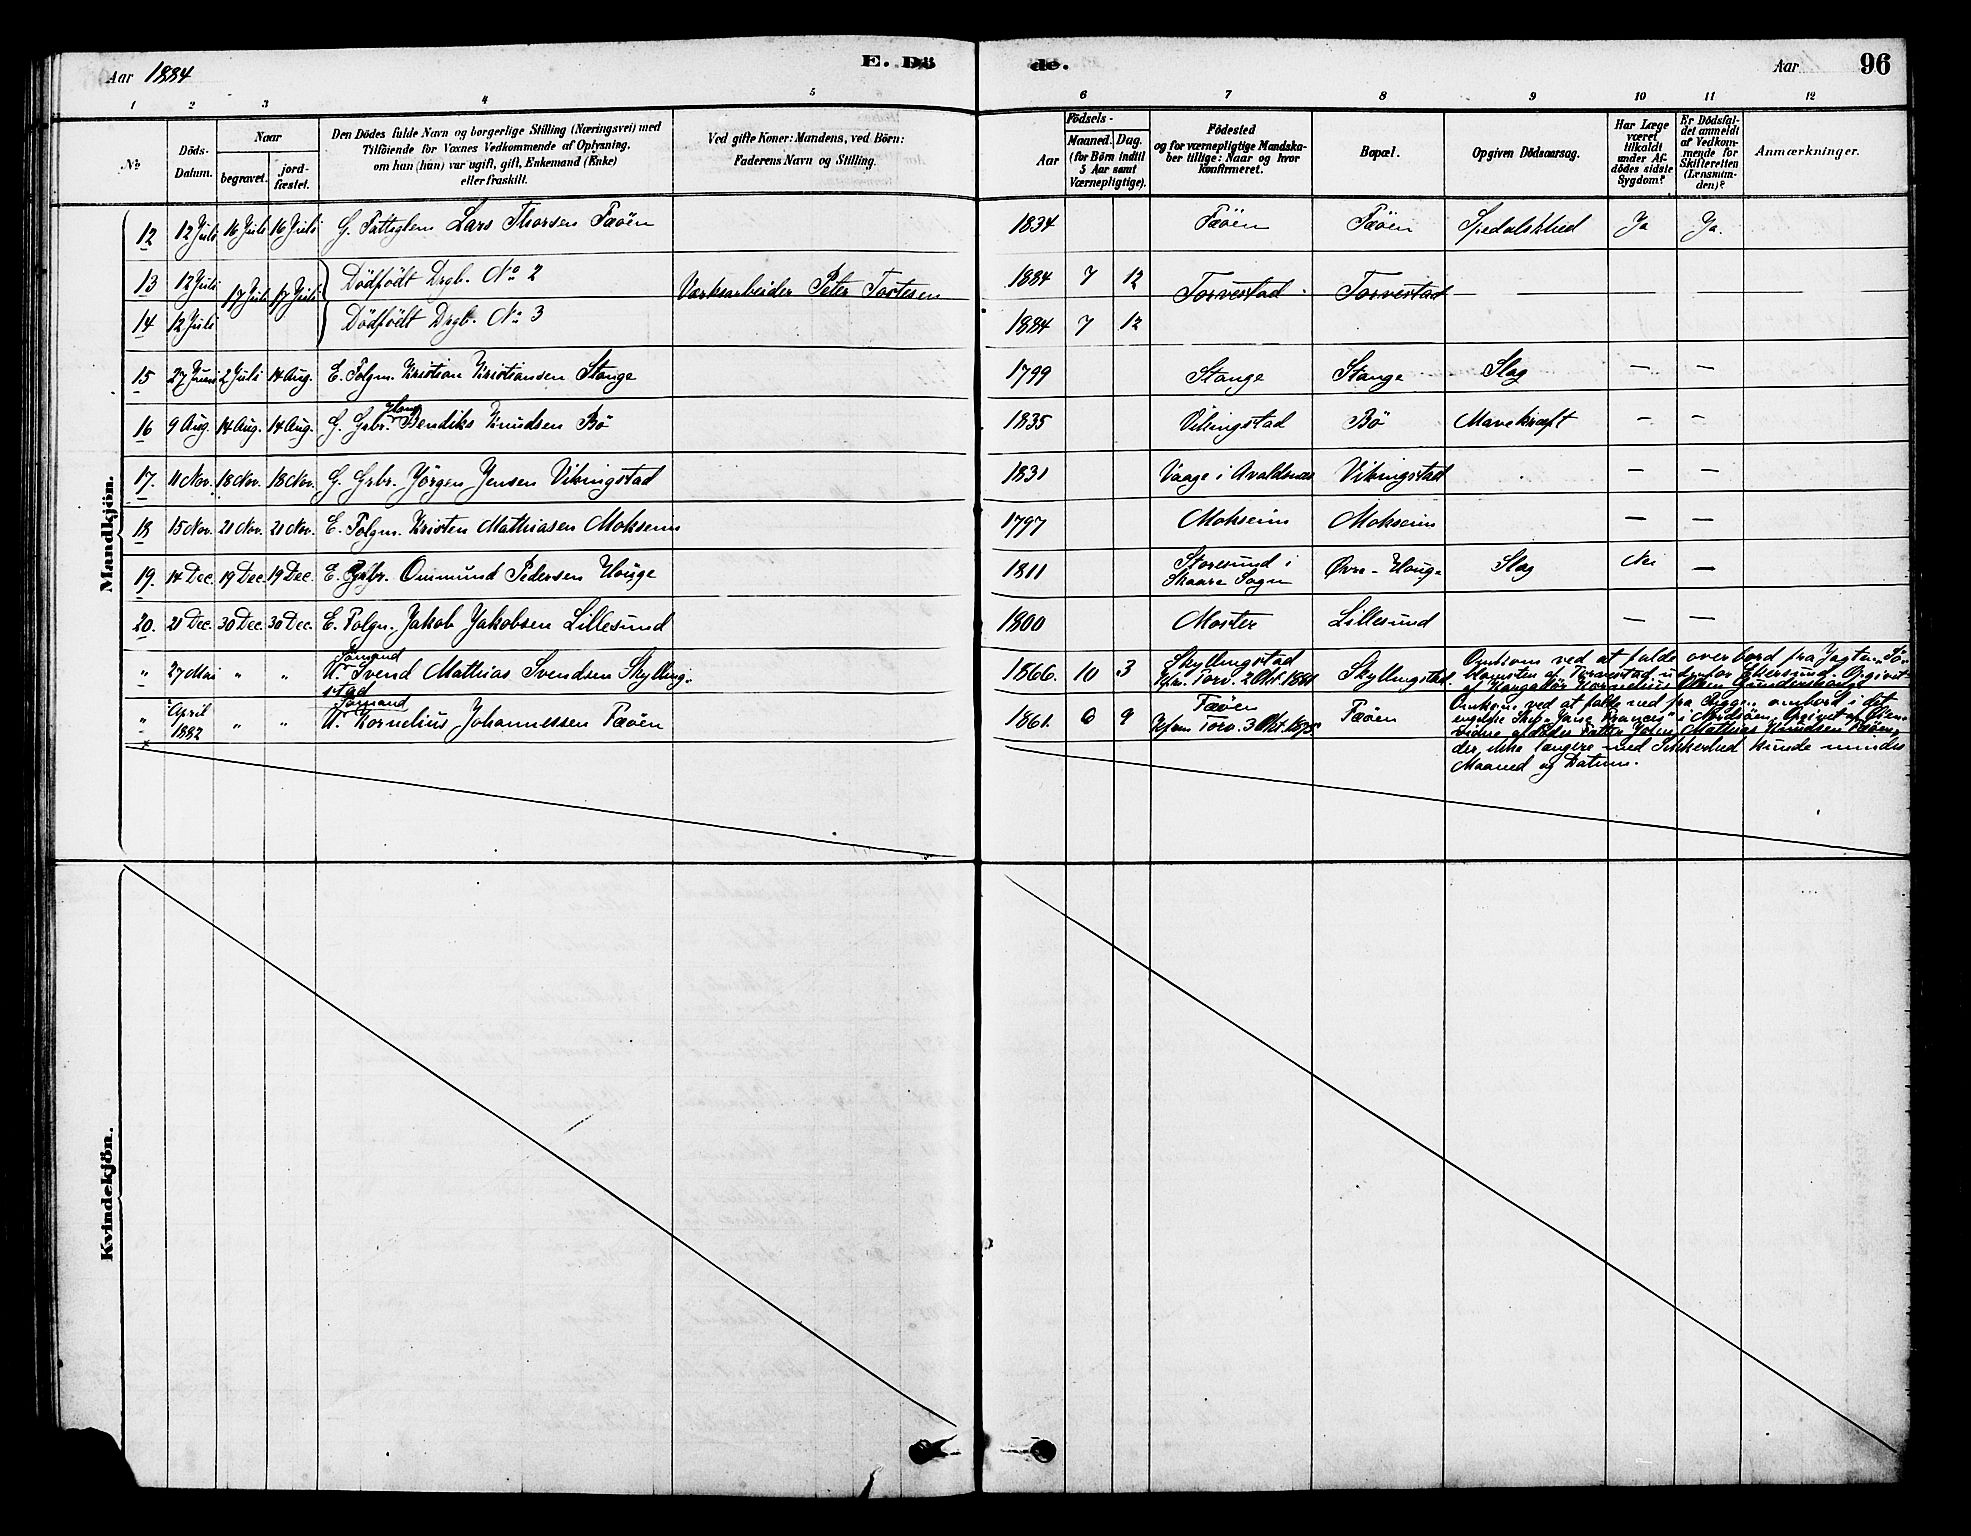 Aar 1884
E. Dö
de.
Aar
96
1 2 3 4 5 6 7 8 9 10 11 12
No
Döds-Datum.
Naar
begravet.
jord-fæstet.
Den Dödes fulde Navn og borgerlige Stilling (Næringsvei) med
Tilföiende for Voxnes Vedkommende af Oplysning,
om han (hun) var ugift, gift, Enkemand (Enke)
eller fraskilt.
Ved gifte Koner: Mandens, ved Börn:
Faderens Navn og Stilling.
Födsels-
Aar
Maaned.
Dag.
(for Börn indtil
5 Aar samt
Værnepligtige).
Födested
og for værnepligtige Mandska-
ber tillige: Naar og hvor
konfirmeret.
Bopæl.
Opgiven Dödsaarsag.
Har Læge
været
tilkaldt
under Af-
dödes sidste
Sygdom?
Er Dödsfal-
det anmeldt
af Vedkom-
mende for
Skifteretten
(Lensman-
den)?
Anmærkninger.
Mandkjön.
12 12 Juli 16 Juli 16 Juli G. Fattiglem Lars Thorsen Fæöen 1834 Fæöen Fæöen Spedalskhed Ja Ja.
13 12 Juli 17 Juli 17 Juli Dödfödt Drgb. No 2 Værksarbeider Peter Tostesen 1884 7 12 Torvestad Torvestad — — —
14 12 Juli Dödfödt Drgb. No 3 1884 7 12
15 27 Juni 2 Juli 14 Aug. E. Folgm. Kristian Kristiansen Stange 1799 Stange Stange Slag — —
16 9 Aug. 14 Aug. 14 Aug. G. Grbr. Bendiks Knudsen Bö 1835 Vikingstad Bö Mavekræft — —
17. 11 Nov. 18 Nov. 18 Nov. G. Grbr. Jörgen Jensen Vikingstad 1831 Vaage i Avaldsnes Vikingstad — —
18 15 Nov. 21 Nov. 21 Nov. E. Folgm. Kristen Mathiasen Mokseim 1797 Mokseim Mokseim — —
19. 14 Dec. 19 Dec. 19 Dec. E. Grbr. Ommund Pedersen Houge 1811 Storesund i Skaare Sogn Øvre-Houge Slag Nei —
20. 21 Dec. 30 Dec. 30 Dec. E. Folgm. Jakob Jakobsen Lillesund 1800 Moster Lillesund — —
" 27 Mai " " U. Sömand Svend Mathias Svendsen Skyllingstad 1866. 10 3 Skyllingstad Kfm. Torv. 2 Okt. 1881 Skyllingstad. Omkom ved at falde overbord fra Jagten "Sö-
blomsten" af Torvestad udenfor Ekersund. Opgivet
af
" April 1882 " " U. Sömand Kornelius Johannessen Fæöen 1861. 6 9 Fæöen Kfm. Torv. 3 Okt. 1875 Fæöen Omkom ved at falde ned fra Riggen ombord i det
engelske Skib "Jane Frances" i Nordsöen. Opgivet af
Fader Johan. Mathias Knudsen Fæöen,
der ikke længere med Sikkerhed kunde mindes
Maaned og Datum.
Kvindekjön.